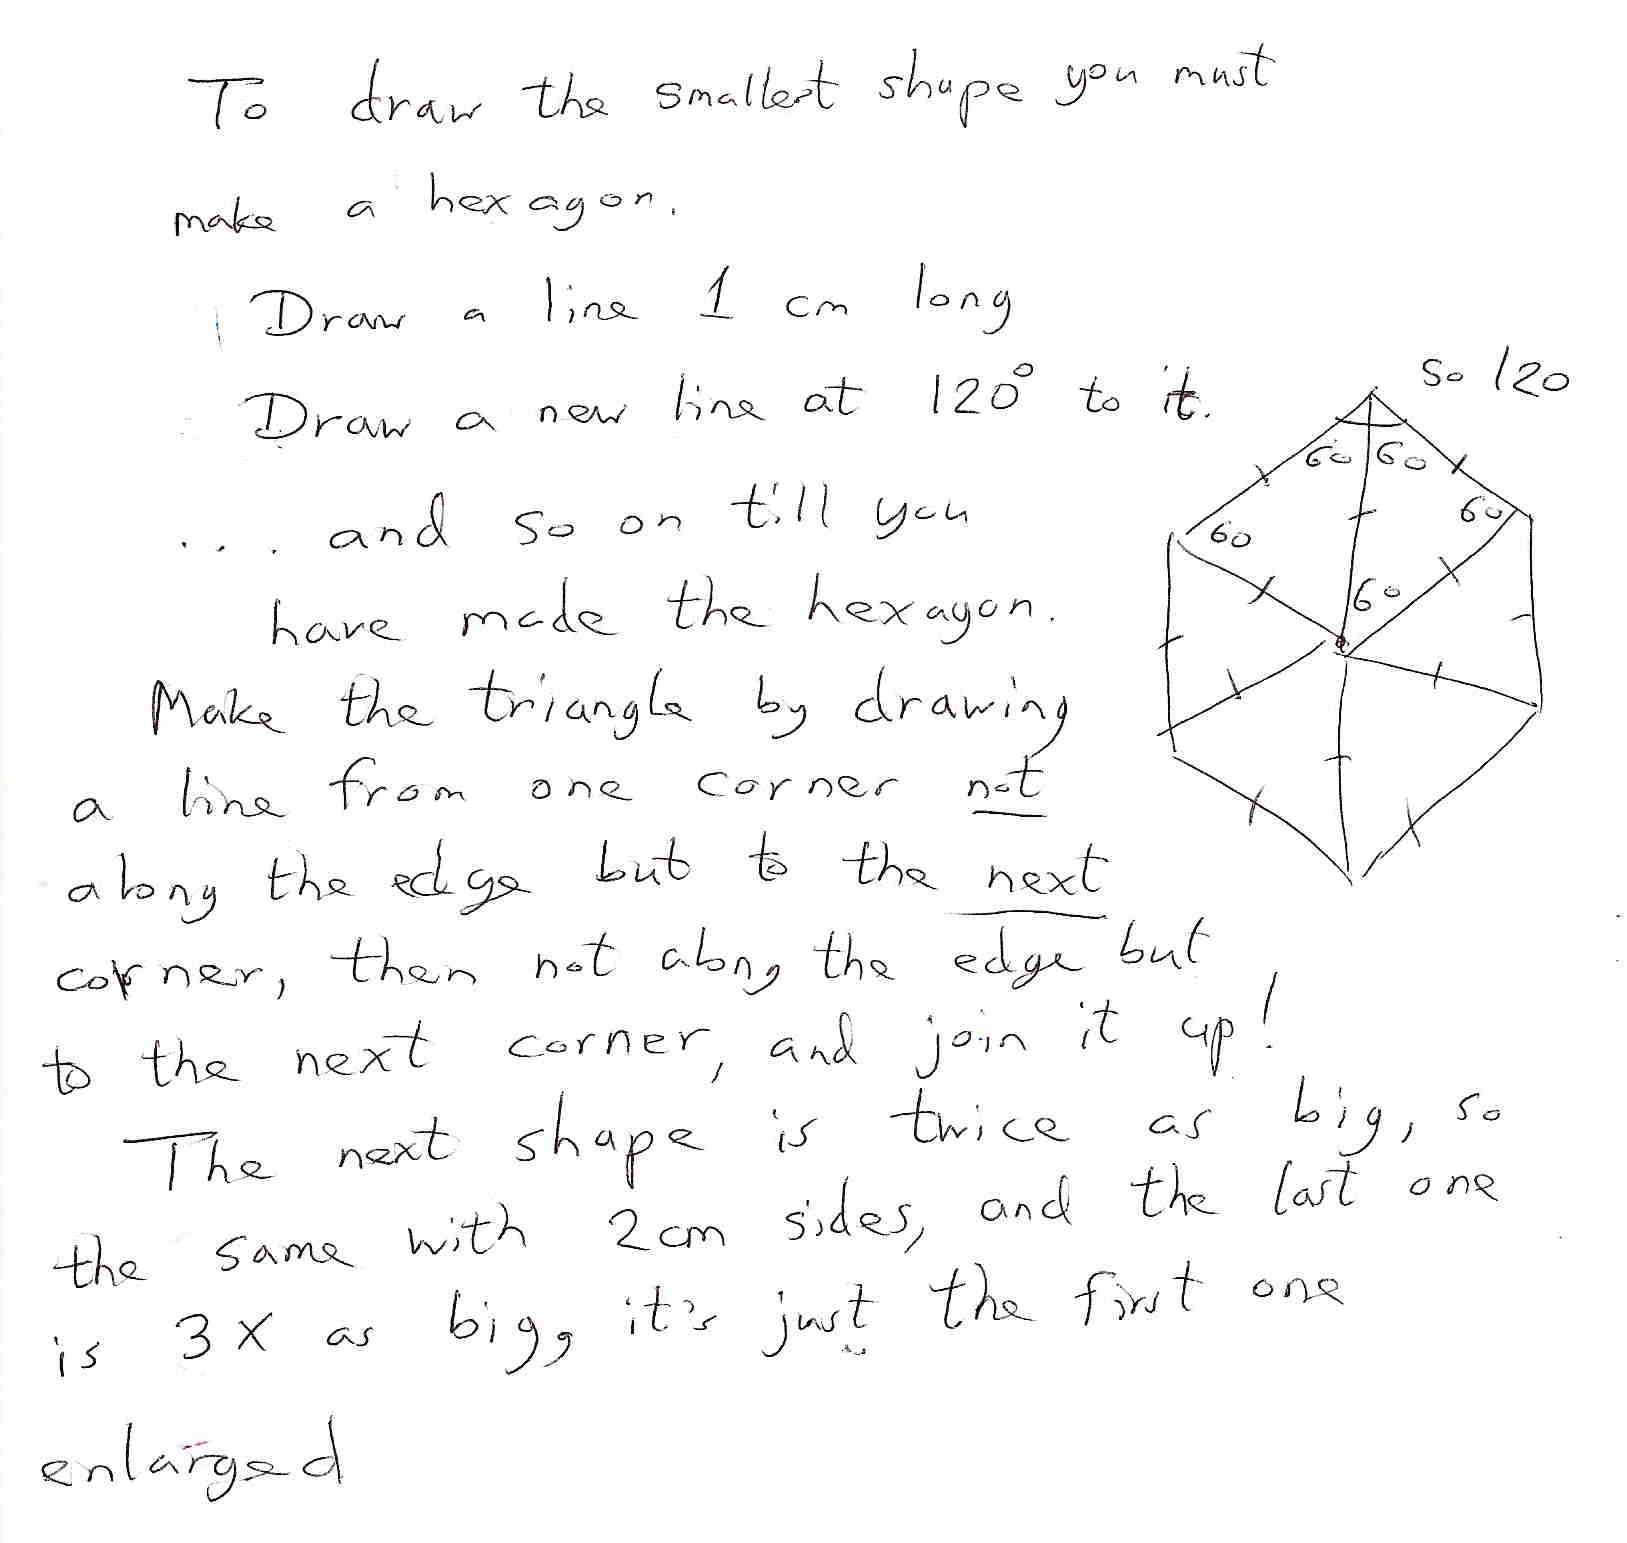 To draw the smallest shape you must
make a hexagon.
Draw a line 1 cm long
Draw a new line at 120° to it.
so 120
60 60
60
60
60
.... and so on till you
have made the hexagon.
Make the triangle by drawing
a line from one corner not
along the edge but to the next
corner, then not along the edge but
to the next corner, and join it up!
The next shape is twice as big, so
the same with 2cm sides, and the last one
is 3X as big, it's just the first one
enlarged